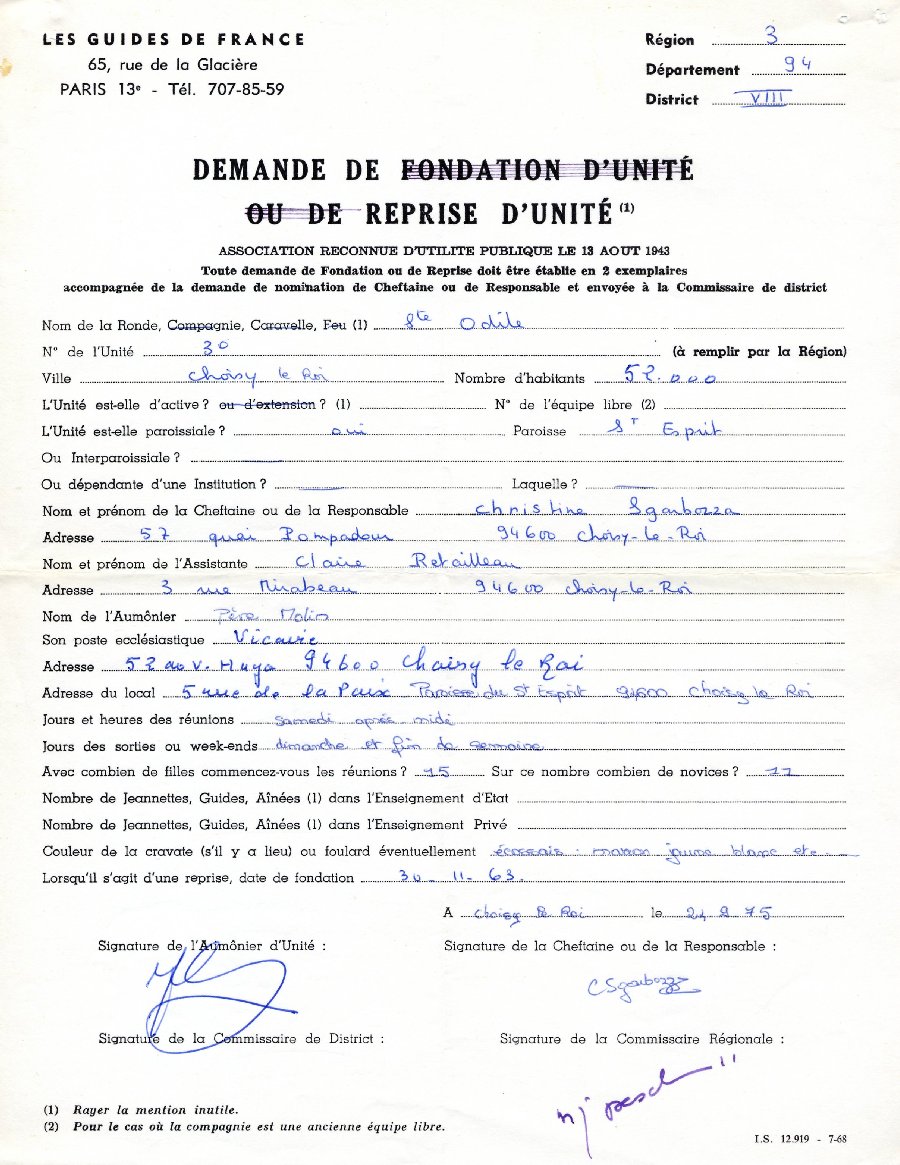 LES GUIDES DE FRANCE
65, rue de la Glacière
PARIS 13e - Tél. 707-85-59
Région 3
Département 94
District VIII
DEMANDE DE FONDATION D'UNITÉ
OU DE REPRISE D'UNITÉ (1)
ASSOCIATION RECONNUE D'UTILITE PUBLIQUE LE 13 AOUT 1943
Toute demande de Fondation ou de Reprise doit être établie en 2 exemplaires
accompagnée de la demande de nomination de Cheftaine ou de Responsable et envoyée à la Commissaire de district
Nom de la Ronde, Compagnie, Caravelle, Feu (1) Ste Odile
N° de l'Unité 3° (à remplir par la Région)
Ville Choisy le Roi Nombre d'habitants 52.000
L'Unité est-elle d'active ? ou d'extension ? (1) N° de l'équipe libre (2)
L'Unité est-elle paroissiale ? oui Paroisse ST Esprit
Ou Interparoissiale ?
Ou dépendante d'une Institution ? Laquelle ?
Nom et prénom de la Cheftaine ou de la Responsable Christine Sgarbozza
Adresse 57 quai Pompadour 94600 Choisy-le-Roi
Nom et prénom de l'Assistante Claire Retailleau
Adresse 3 rue Mirabeau 94600 Choisy-le-Roi
Nom de l'Aumônier Père Molin
Son poste ecclésiastique Vicaire
Adresse 52 av V. Hugo 94600 Choisy le Roi
Adresse du local 5 rue de la Paix Paroisse du St Esprit 94600 Choisy le Roi
Jours et heures des réunions samedi après midi
Jours des sorties ou week-ends dimanche et fin de semaine
Avec combien de filles commencez-vous les réunions ? 15 Sur ce nombre combien de novices ? 11
Nombre de Jeannettes, Guides, Aînées (1) dans l'Enseignement d'Etat
Nombre de Jeannettes, Guides, Aînées (1) dans l'Enseignement Privé
Couleur de la cravate (s'il y a lieu) ou foulard éventuellement écossais : marron jaune blanc etc
Lorsqu'il s'agit d'une reprise, date de fondation 30-11-63.
A Choisy le Roi le 24 2 75
Signature de l'Aumônier d'Unité :
Signature de la Cheftaine ou de la Responsable :
CSgarbozza
Signature de la Commissaire de District :
Signature de la Commissaire Régionale :
(1) Rayer la mention inutile.
(2) Pour le cas où la compagnie est une ancienne équipe libre.
I.S. 12.919 - 7-68